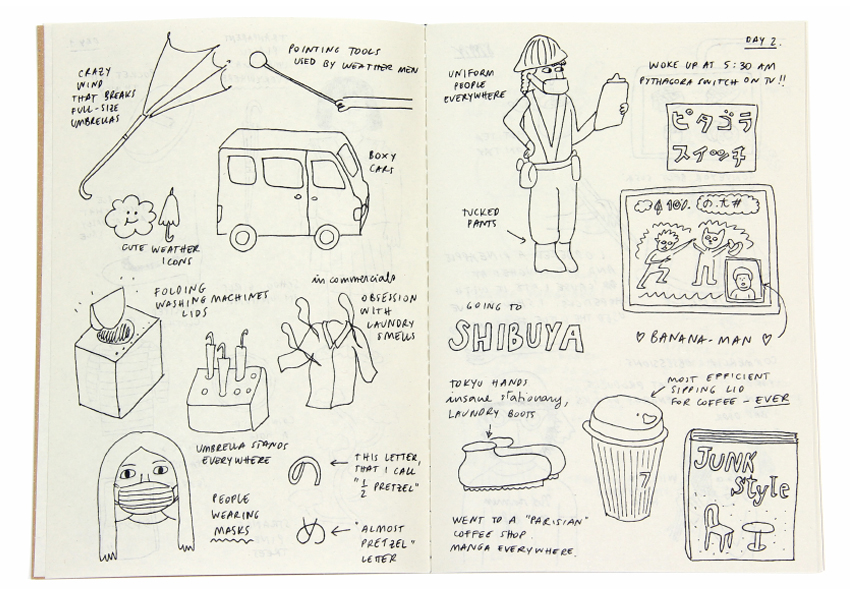 CRAZY
WIND
THAT BREAKS
FULL-SIZE
UMBRELLAS
POINTING TOOLS
USED BY WEATHER MEN
BOXY
CARS
CUTE WEATHER
ICONS
FOLDING
WASHING MACHINES
LIDS
in commercials
OBSESSION
WITH
LAUNDRY
SMELLS
UMBRELLA STANDS
EVERYWHERE
PEOPLE
WEARING
MASKS
THIS LETTER,
THAT I CALL
"½
PRETZEL"
め
"ALMOST
PRETZEL"
LETTER
DAY 2.
UNIFORM
PEOPLE
EVERYWHERE
TUCKED
PANTS
WOKE UP AT 5:30 AM
PYTHAGORA SWITCH ON TV!!
ピタゴラ
スイッチ
♡ BANANA-MAN ♡
GOING TO
SHIBUYA
TOKYU HANDS
insane stationary,
LAUNDRY BOOTS
MOST EFFICIENT
SIPPING LID
FOR COFFEE - EVER
7
WENT TO A "PARISIAN"
COFFEE SHOP
MANGA EVERYWHERE.
JUNK
Style